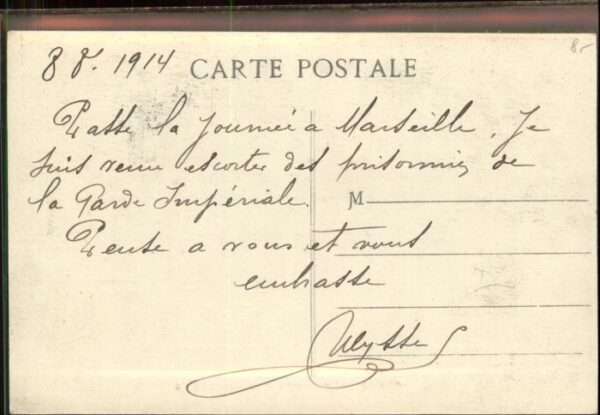 8 8. 1914
CARTE POSTALE
Passe la Journée à Marseille. Je
suis venu escorter des prisonniers de
la Garde Impériale.
M
Pense a vous et vous
embrasse
Ulysse